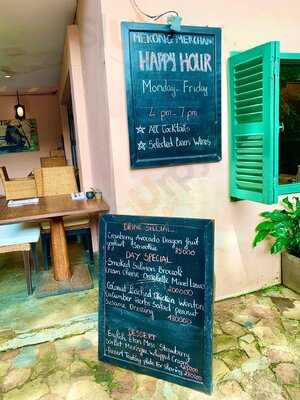 MEKONG MERCHANT
HAPPY HOUR
Monday - Friday
4 pm - 7 pm
☆ All Cocktails
☆ Selected Beers Wines
DRINK SPECIAL
Cranberry Avocado Dragon fruit
yoghurt Smoothie 85000
DAY SPECIAL
Smoked Salmon Broccoli
Cream cheese Omelette Mixed
200000
Coconut Poached Chicken Wonton
Cucumber Herbs Salad Peanut
Sesame Dressing 180000
DESSERT
English Eton Mess Strawberry
Sorbet Meringue Whipped Cream
Dessert Tasting plate for sharing